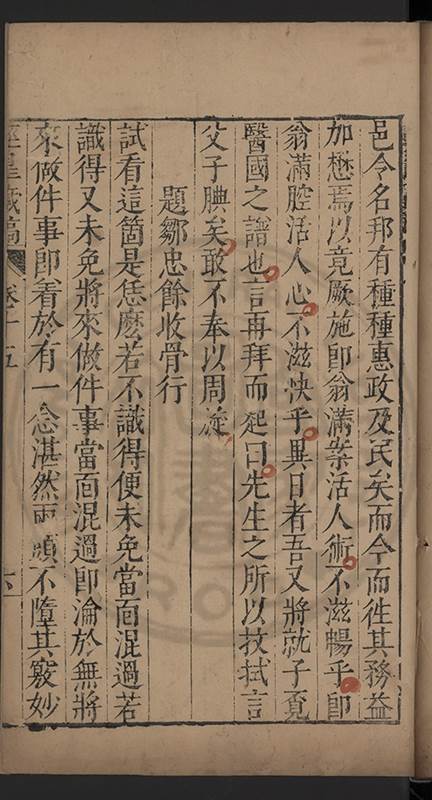 邑令名邦有種種惠政及民矣而今而往其務益
加懋焉以竟厥施即翁滿案活人術不滋暢乎即
翁滿腔活人心不滋快乎異日者吾又將就子覓
醫國之譜也言再拜而起曰先生之所以扙拭言
父子腆矣敢不奉以周旋
題鄒忠餘收骨行
試看這箇是恁麽若不識得便未免當面混過若
識得又未免將來做件事當面混過即淪於無將
來做件事即着於有一念湛然兩頭不墮其竅妙
涇臯藏稿
卷十五
六